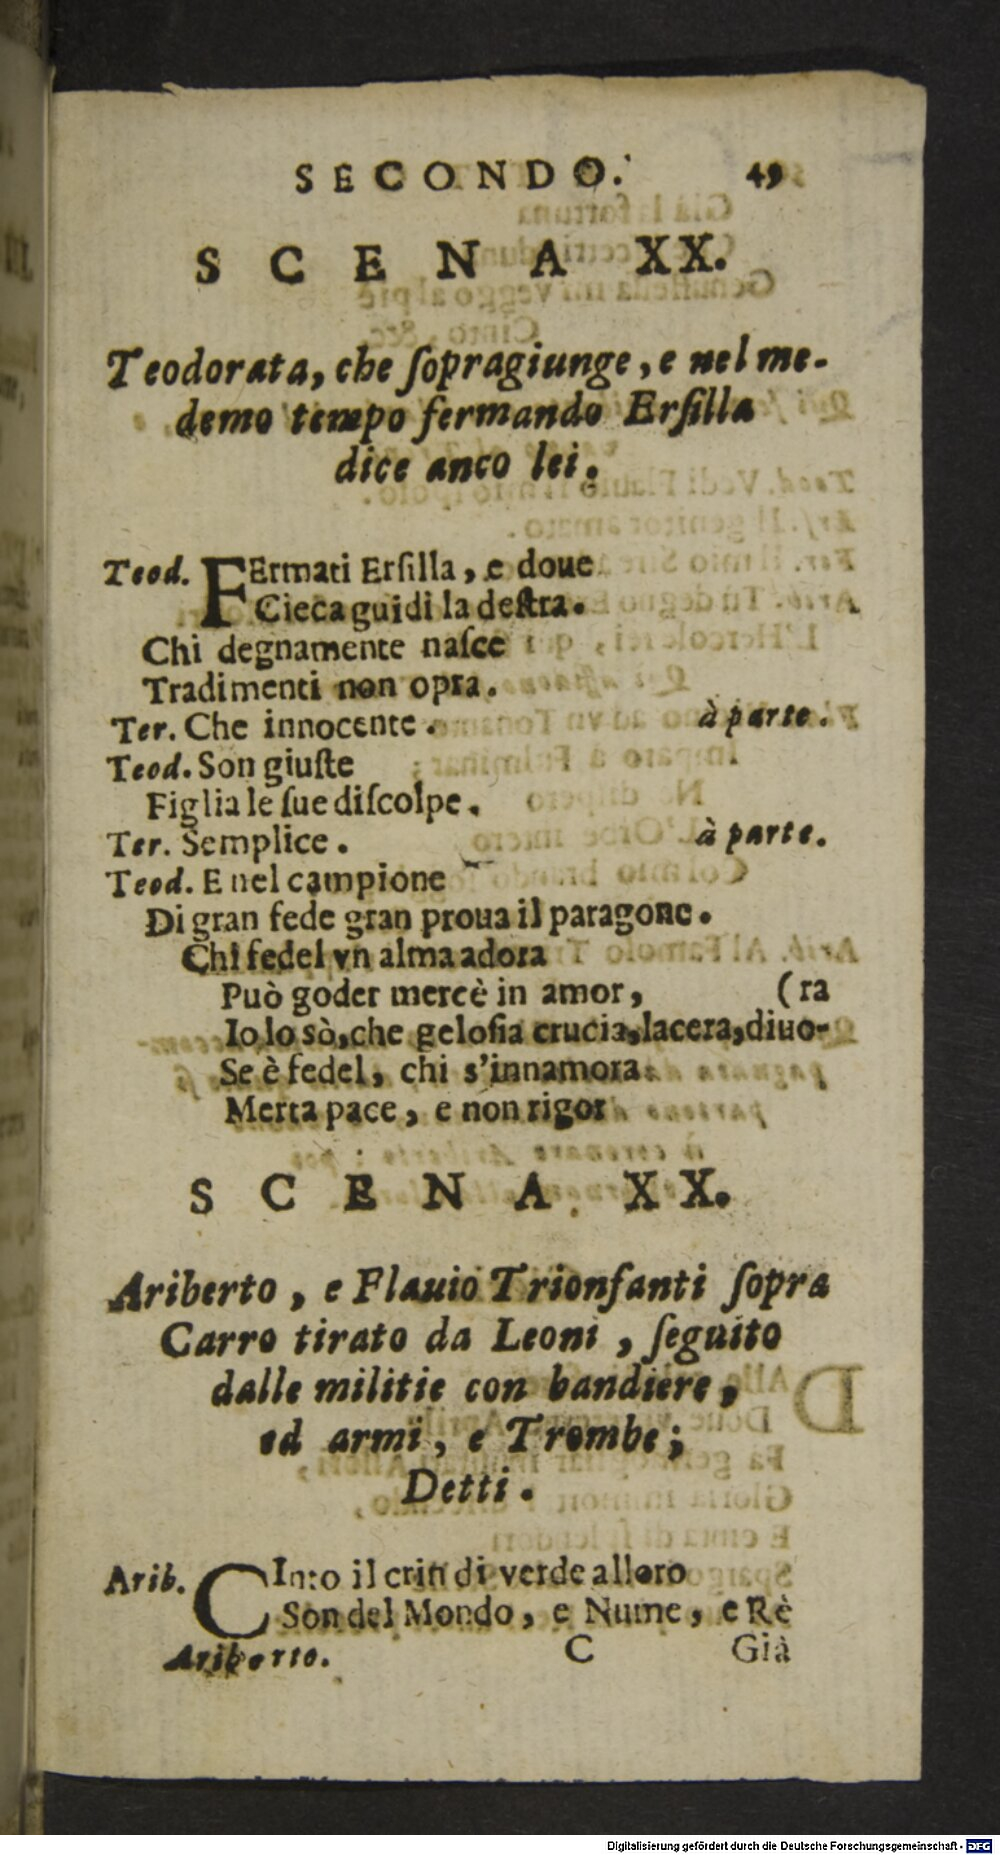 SECONDO. 49
SCENA XX.
Teodorata, che ſopragiunge, e nel me-
demo tempo fermando Erſilla
dice anco lei.
Teod. FErmati Erſilla, e doue
Cieca guidi la deſtra.
Chi degnamente naſce
Tradimenti non opra.
Ter. Che innocente. à parte.
Teod. Son giuſte
Figlia le ſue diſcolpe.
Ter. Semplice. à parte.
Teod. E nel campione
Di gran fede gran proua il paragone.
Chi fedel vn alma adora
Può goder mercè in amor, (ra
Io lo sò, che geloſia crucia, lacera, diuo-
Se è fedel, chi s'innamora
Merta pace, e non rigor
SCENA XX.
Ariberto, e Flauio Trionfanti ſopra
Carro tirato da Leoni, ſeguito
dalle militie con bandiere,
ed armi, e Trombe;
Detti.
Arib. CInto il crin di verde alloro
Son del Mondo, e Nume, e Rè
Ariberto. C Già
Digitalisierung gefördert durch die Deutsche Forschungsgemeinschaft - DFG